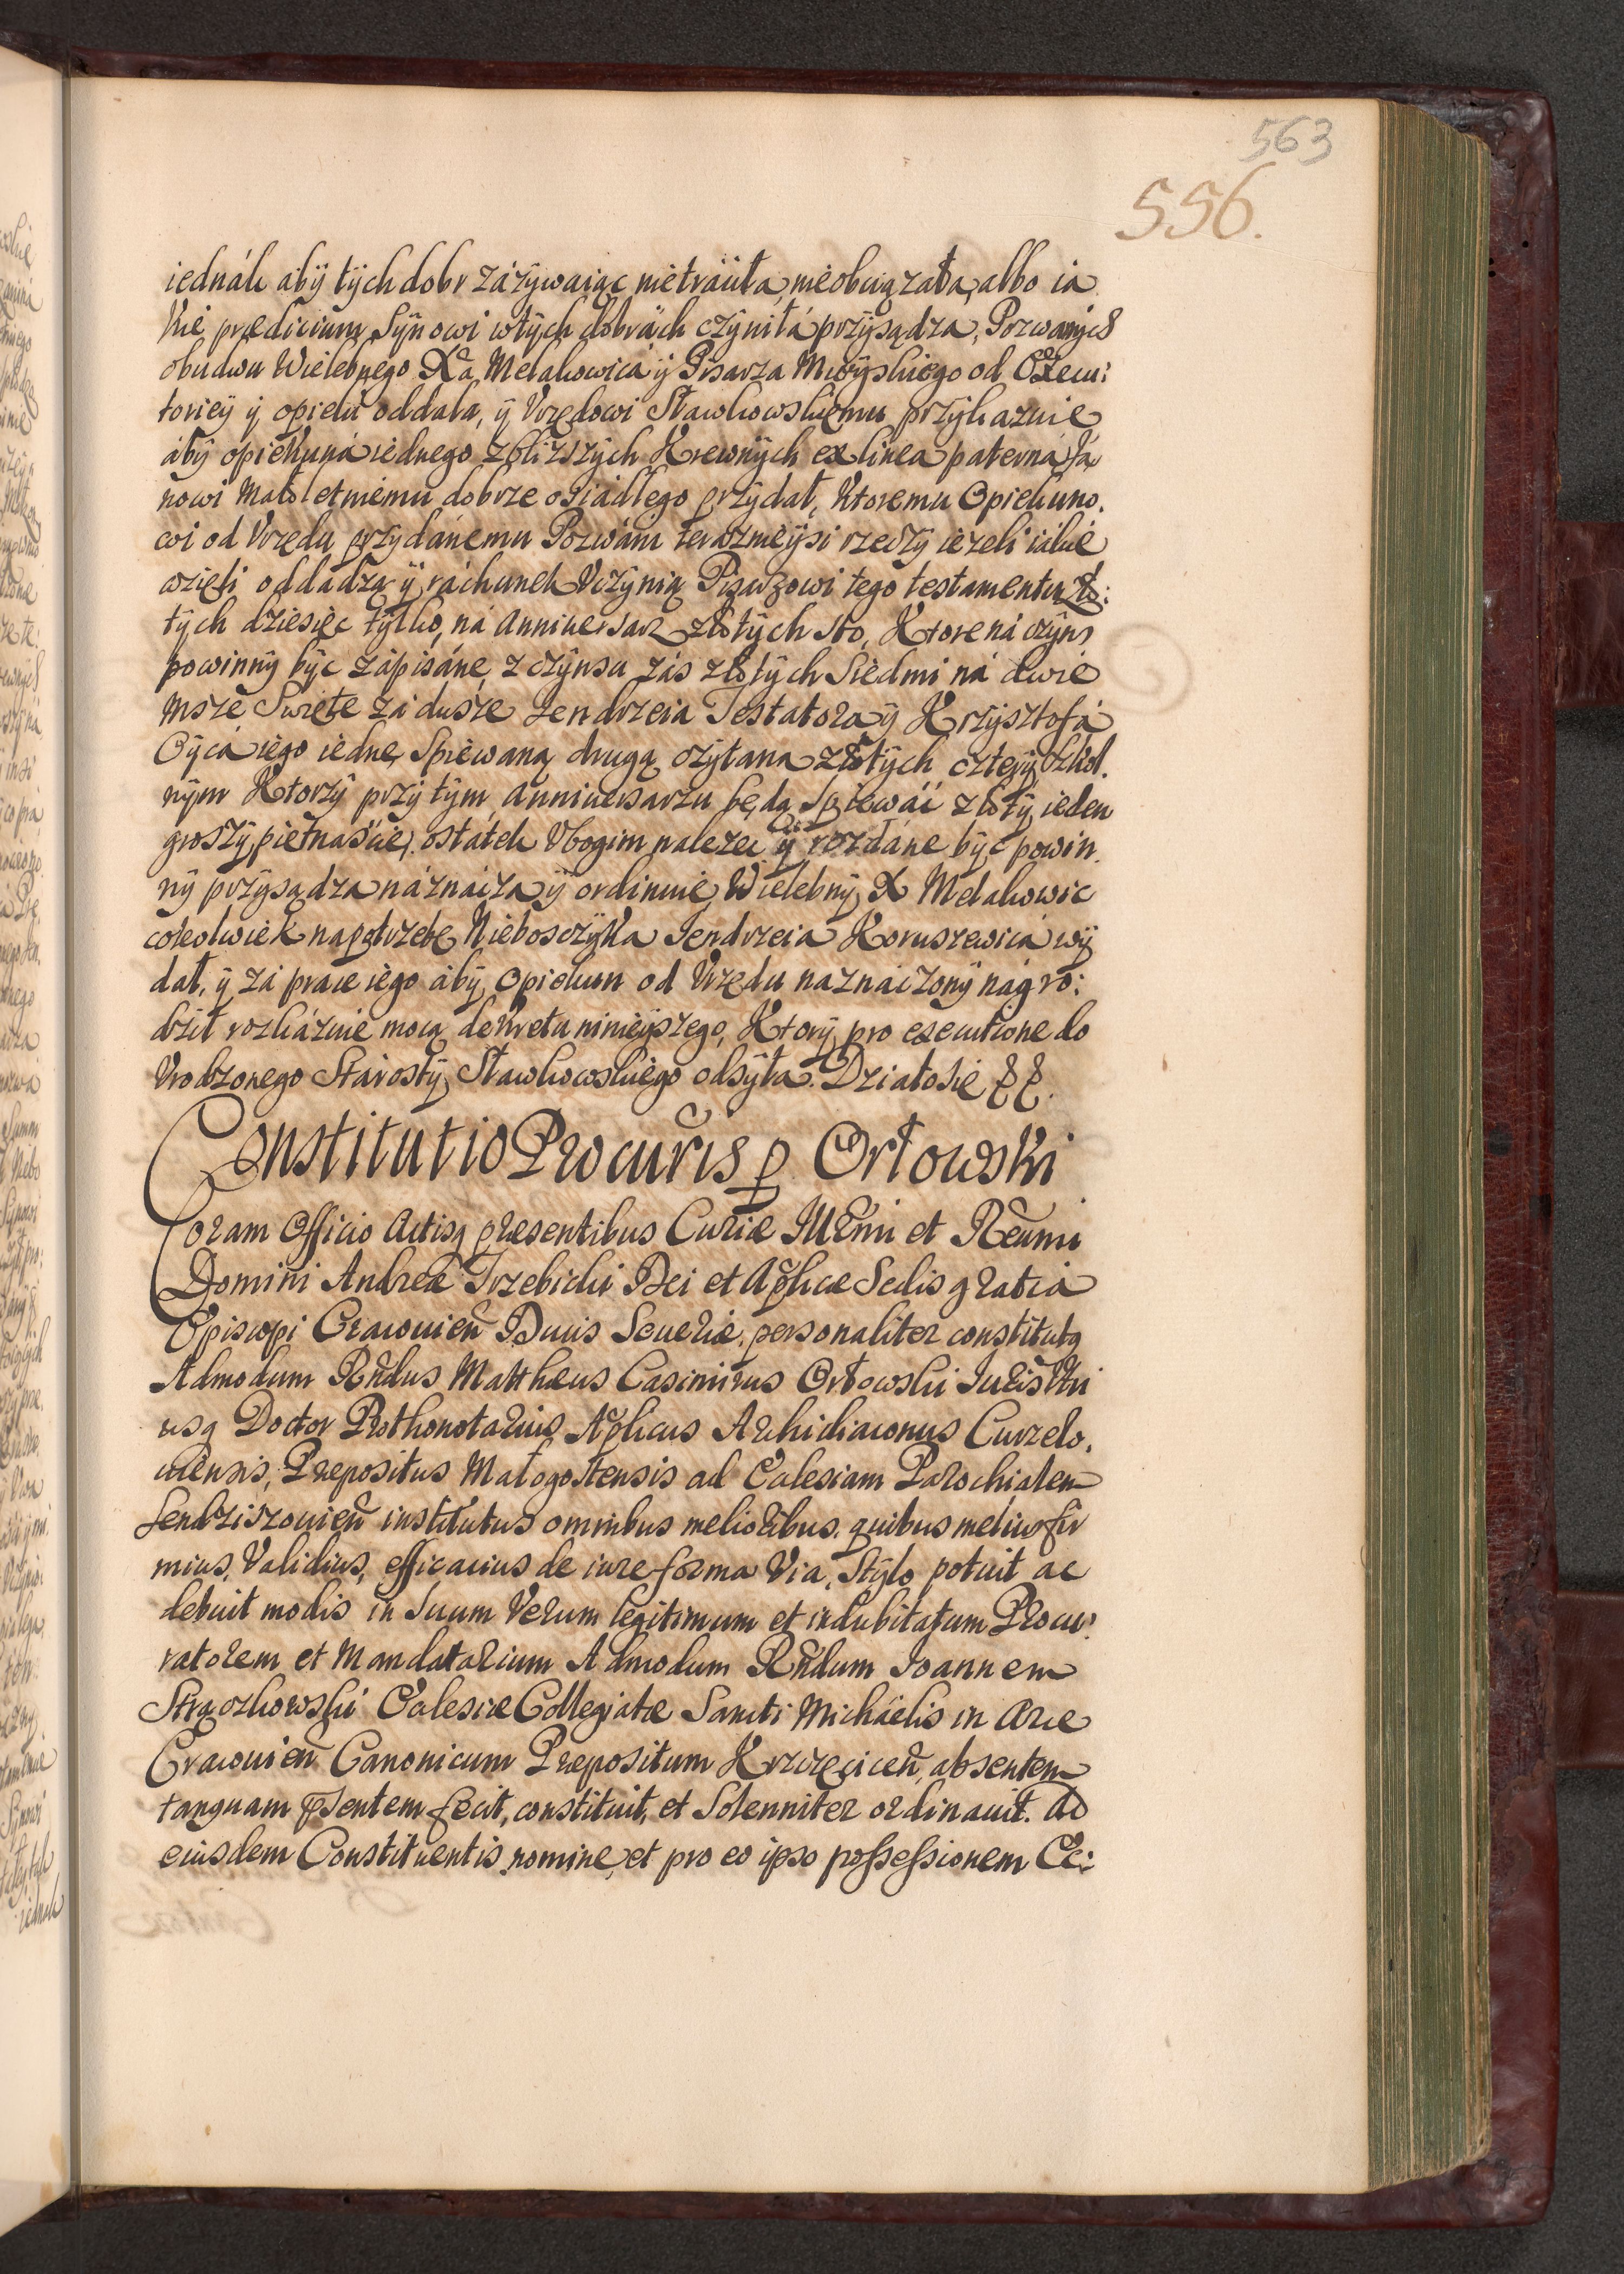 563
556.
iednák abÿ tÿch dobr záżÿwaiąc nietráciła, nieobciązała, albo iá
kie prædicium Sÿnowi wtÿch dobrách czÿniłá przÿsądza, Pozwanÿch
obudwu Wielebnego Xa Melakowicá ÿ Pisarza Mieÿskiego od Execu:
toriey ÿ opieki oddala, ÿ Vrzędowi Sławkowskiemu przÿkazuie
abÿ opiekuná iednego zbliższÿch Krewnÿch ex linea paterna Pá
nowi Małoletniemu dobrze osiádłego przÿdał, Ktoremu Opiekuno.
wi od Vrzędu przÿdánemu Pozwáni teráznieÿsi rzeczÿ ieżeli iákie
wzięli oddádzą ÿ ráchunek Vczÿnią Pisarzowi tego testamentu zło:
tÿch dziesięc tÿlko, ná Anniuersarz złotÿch sto, Ktore ná czÿns
powinnÿ bÿc zápisáne, z czÿnsu zás złotÿch Siedmi ná dwie
Msze Swięte zá dusze Jendrzeia Testatora ÿ Krzÿsztofá
Oÿcá iego iednę Spiewaną drugą czÿtaną złotÿch czterÿ Szkol.
nÿm Ktorzÿ przÿ tÿm Anniuersarzu będą Spiewáć złotÿ ieden
groszÿ piętnaście, ostátek Vbogim nalezec ÿ rozdáne bÿć powin.
nÿ przÿsądza náznácza ÿ ordinuie, Wielebnÿ X Melakowic
cokolwiek na potrzebę Nieboszczÿka Jendrzeia Koruszewicá wÿ
dał, ÿ zá prace iego ábÿ Opiekun od Vrzędu naznáczonÿ nágro:
dził rozkázuie mocą dekretu ninieÿszego, Ktorÿ pro executione do
Vrodzonego Stárostÿ Sławkowskiego odsÿła. Działosię
Constitutio Procuris p Orłowski
Coram Officio Actisq præsentibus Curiæ Illmi et Reumi
Domini Andreæ Trzebicki Dei et Aplicæ Sedis gratia
Episcopi Cracouien Ducis Seueriæ, personaliter constitutq
Admodum Rndus Matthæus Casimirus Orłowski Iuris Utri
usq Doctor Prothonotarius Aplicus Archidiaconus Curzelo.
uiensis, Præpositus Małogostensis ad Ecclesiam Parochialem
Sendziszouien institutus omnibus melioribus, quibus melius fir
mius, Validius, efficacius de iure forma Via, Stÿlo potuit ac
debuit modis in Suum Verum legitimum et indubitatum Procu:
ratorem et Mandatarium Admodum Rndum Joannem
Strączkowski Ecclesiæ Collegiatæ Sancti Michaelis in Arce
Cracouien Canonicum Præpositum Krzcięcicen, absentem
tanquam psentem fecit, constituit, et Solenniter ordinauit. Ad
eiusdem Constituentis nomine, et pro eo ipso possessionem Ec: